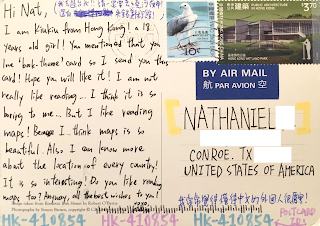 Hi Nat,
I am Kinkin from Hong Kong! a 18
years old girl! You mentioned that you
love "book-theme" card so I send you this
card! Hope you will like it! I am not
really like reading... I think it is so
boring to me... But I like reading
maps! Because I think maps is so
beautiful. Also I can know more
about the location of every country!
It is so interesting! Do you like reading
maps too? Anyway, all the best wishes to you!
PUBLIC ARCHITECTURE
HONG KONG WETLAND PARK
$3.70
10¢
BY AIR MAIL
航 PAR AVION 空
NATHANIEL
CONROE. TX
UNITED STATES OF AMERICA
HK-410854 HK-410854 HK-410854
POSTCARD
ID